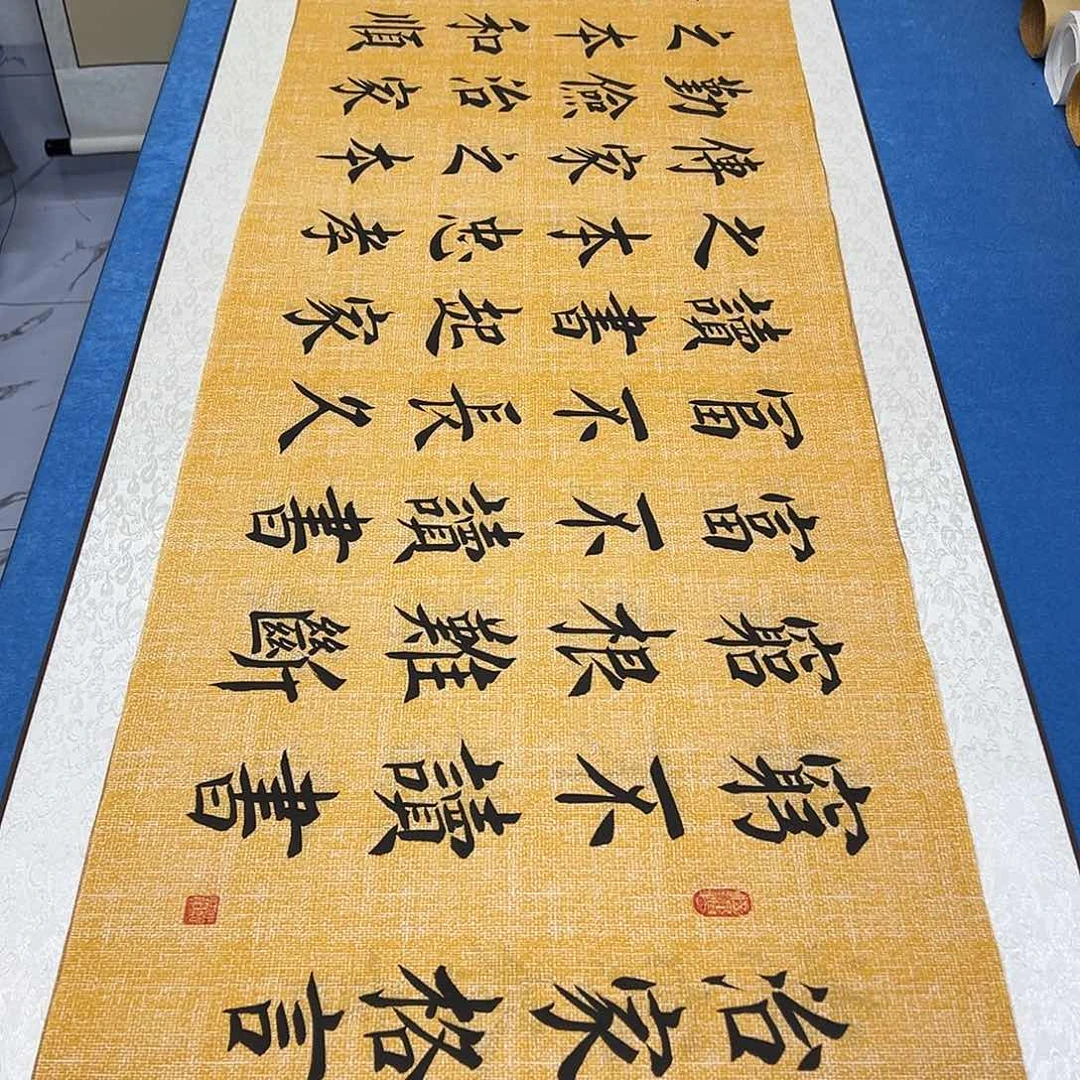 治家格言
窮不讀書
竆根難斷
富不讀書
富不長久
讀書起家
之本忠孝
傳家之本
勤儉治家
之本和順